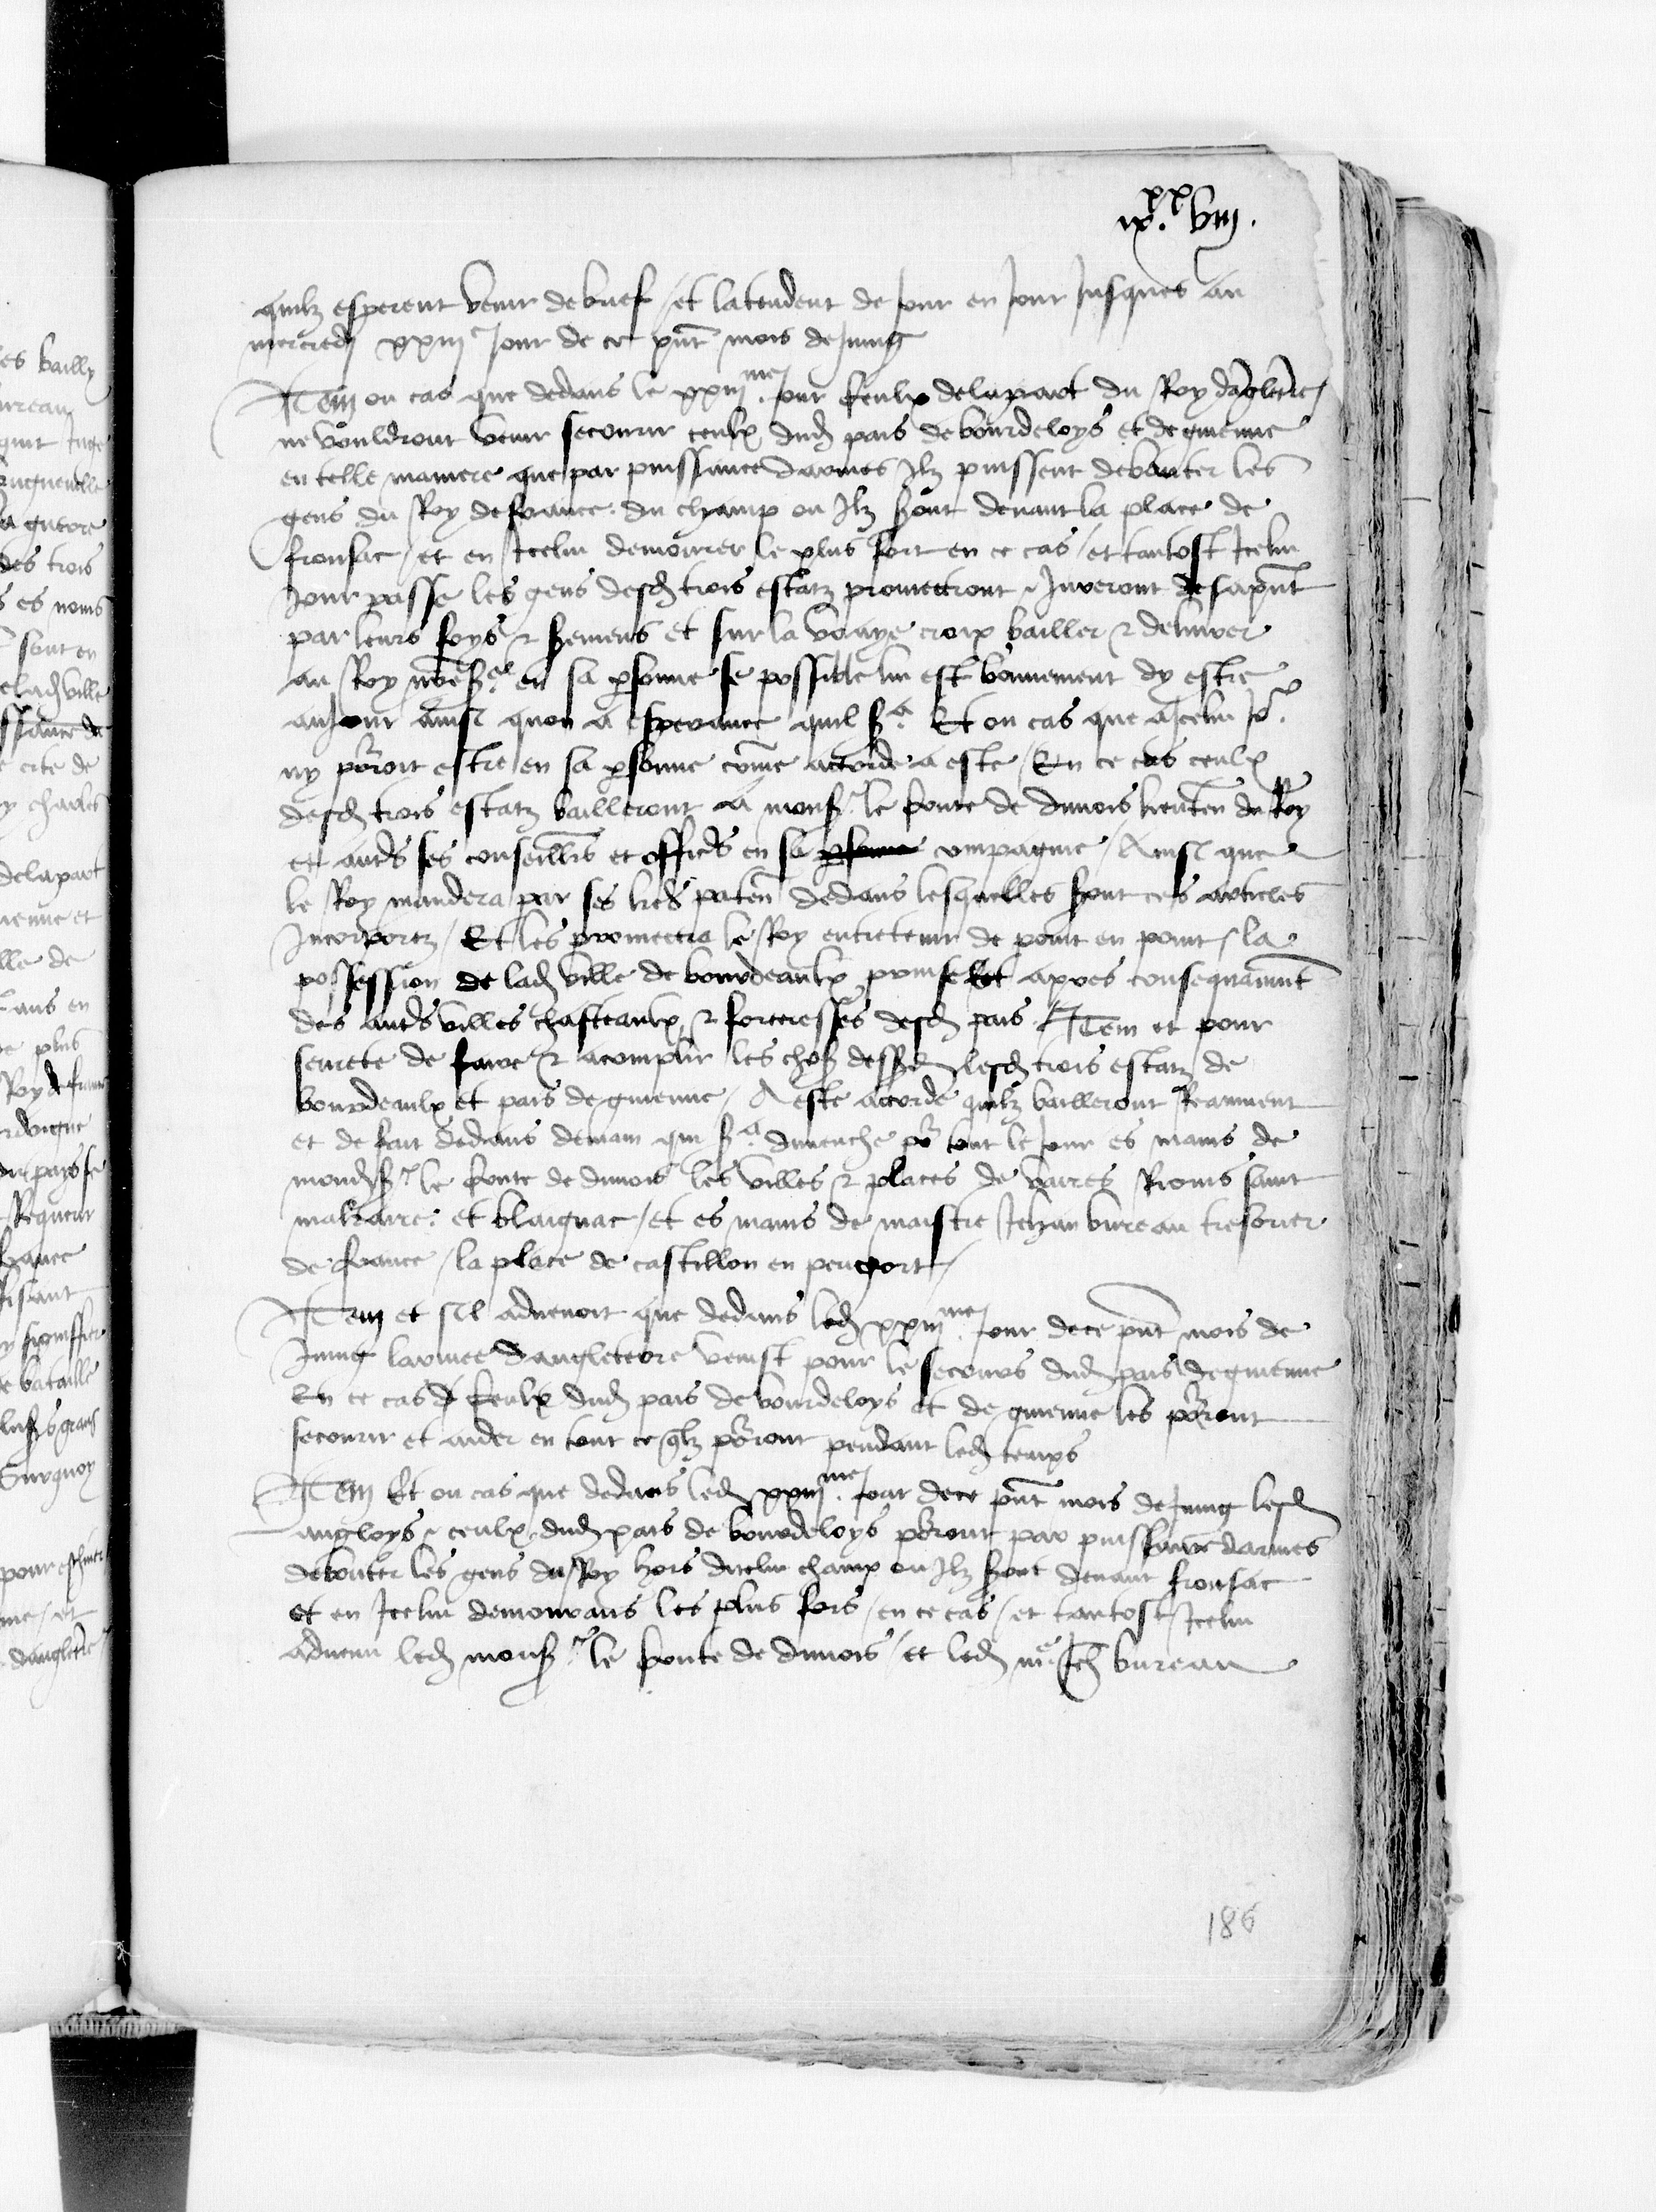 ixˣˣ. viij.
quilz esperent venir de brief / et latendent de Jour en Jour Jusques au
mercredj xxiijᵉ Jour de ce pñt mois de Juing
Item ou cas que dedans le xxiijᵐᵉ. Jour ceulx de la part du Roy dãgleterre /
ne vouldront venir secourir ceulx dud pais de bourdeloys et de guienne
en telle maniere que par puissance darmes Ilz puissent debouter les
gens du Roy de france. du champ ou Ilz sont devant la place de
fronsac / et en Icelui demourer le plus fort en ce cas / et tantost Icelui
Jour passe les gens desd trois estatz promectront & Jureront des apñt
par leurs foys & seremens et sur la vraye croix bailler & delivrer
au Roy nrẽ sʳ. en sa psonne se possible lui est bonnement dy estre
au Jour ainsi quon a esperance quil sᵃ. Et ou cas que a Icelui Joʳ.
ny poʳroit estre en sa psonne cõme accorde a este / En ce cas ceulx
desd trois estatz bailleront a monsʳ. le conte de dunois lieuten du Roy
et autrs ses conseillrs et officrs en sa psonne compagnie / Ainsi que
le Roy mandera par ses lrẽs paten dedans lesquelles sont ces articles
Incorporez / Et les promectra le Roy entretenir de point en point / la
possession de lad ville de bourdeaulx prinse et apres consequãment
des autrs villes chasteaulx & forteresses desd pais. Item et pour
seurete de faire & acomplir les chosẽs dessusd lesd trois estatz de
bourdeaulx et pais de guienne / A este accorde quilz bailleront Reaument
et de fait dedans demain qui sᵃ. dimenche poʳ tout le Jour es mains de
mondsʳ. le conte de dunois les villes & places de vaires Rions saint
makaire. et blaignac / et es mains de maistre Jehan bureau tresorier
de france / la place de castillon en perigort /
Item et sil advenoit que dedans led xxiijᵐᵉ. Jour de ce pñt mois de
Juing larmee dangleterre venist pour le secours dud pais de guienne
En ce cas ceulx dud pais de bourdeloys et de guienne les poʳront
secourir et aider en tout ce qlz poʳront pendant led temps
Item Et ou cas que dedans led xxiijᵐᵉ. Jour de ce pñt mois de Juing lesd
angloys & ceulx dud pais de bourdeloys poʳront par puissance darmes
debouter les gens du Roy hors dicelui champ ou Ilz sont devant fronsac
et en Icelui demourans les plus fors / en ce cas / et tantost Icelui
advenu led monsʳ. le conte de dunois / et led mᵉ. Jeh bureau
186